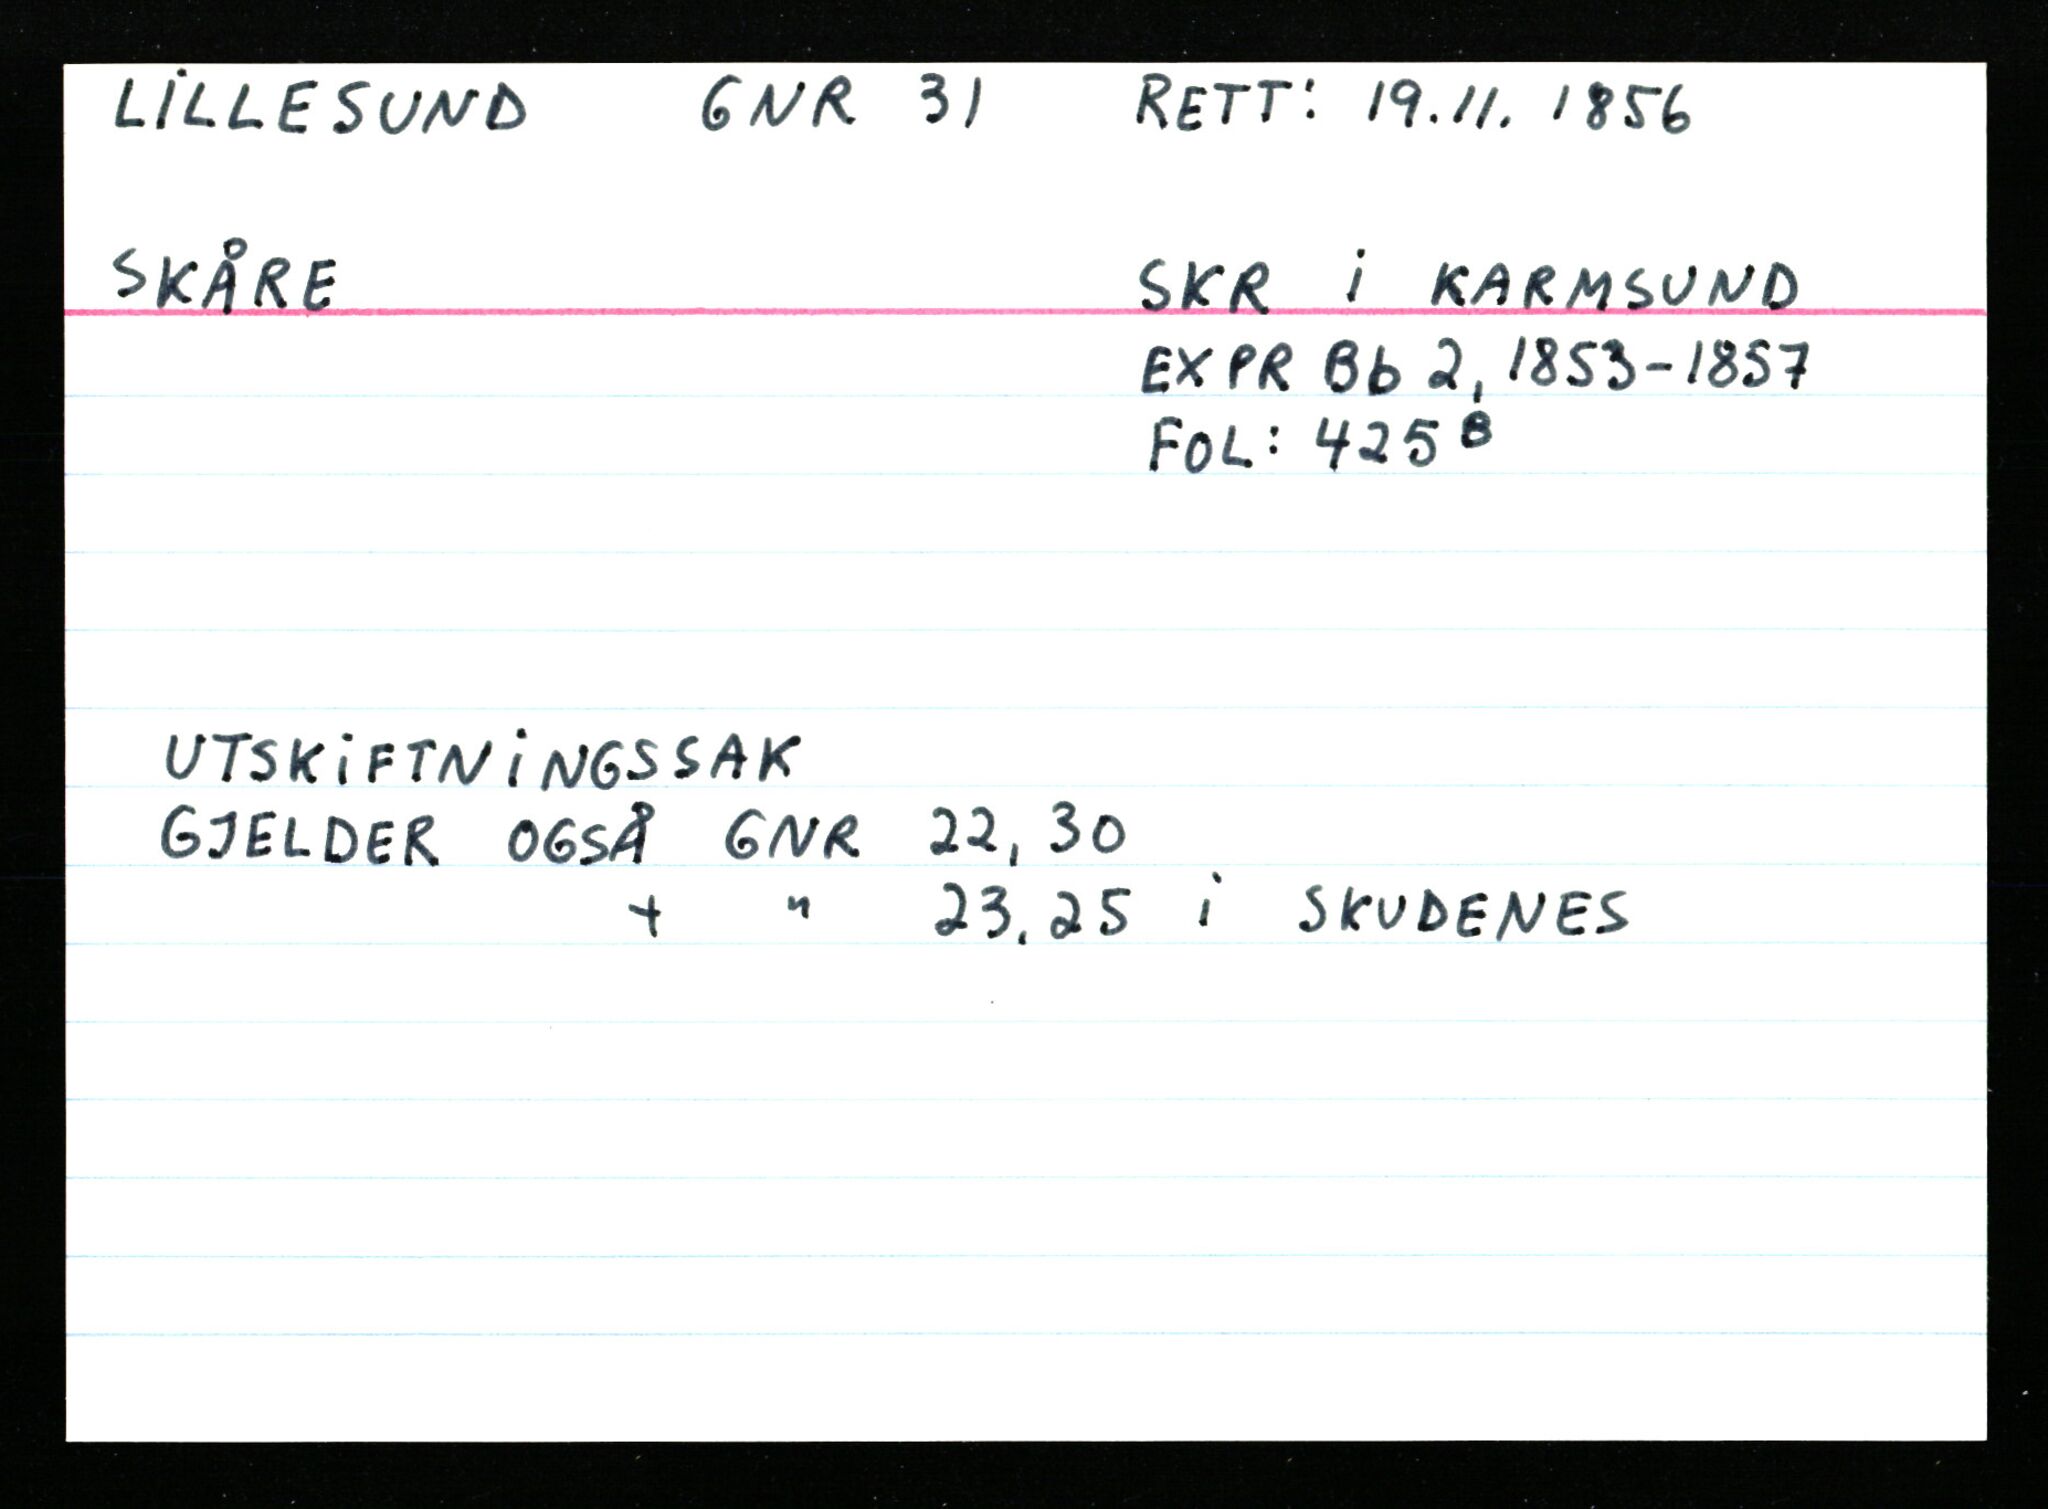 LILLESUND GNR 31 RETT: 19.11. 1856
SKÅRE SKR i KARMSUND
EXPR Bb 2, 1853-1857
FOL: 425 B
UTSKIFTNINGSSAK
GJELDER OGSÅ GNR 22, 30
+ " 23, 25 i SKUDENES